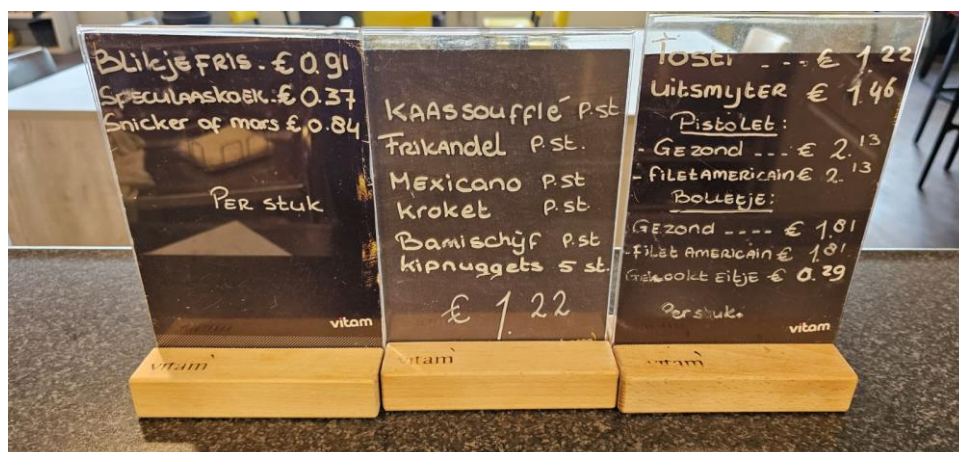 BLikjeFRIS. € 0.91
Speculaaskoek. € 0.37
Snicker of mars € 0.84
Per stuk
vitam
vitam
KAASSoufflé p.st
Frikandel p.st.
Mexicano p.st
Kroket p.st.
Bamischijf p.st
Kipnuggets 5 st.
€ 1.22
vitam
Tosti --- € 1.22
Uitsmyter € 1.46
Pistolet:
- Gezond --- € 2.13
- FiletAmericain € 2.13
Bolletje:
- Gezond ---- € 1.81
- Filet Americain € 1.81
Gekookt Eitje € 0.29
Per stuk.
vitam
vitam